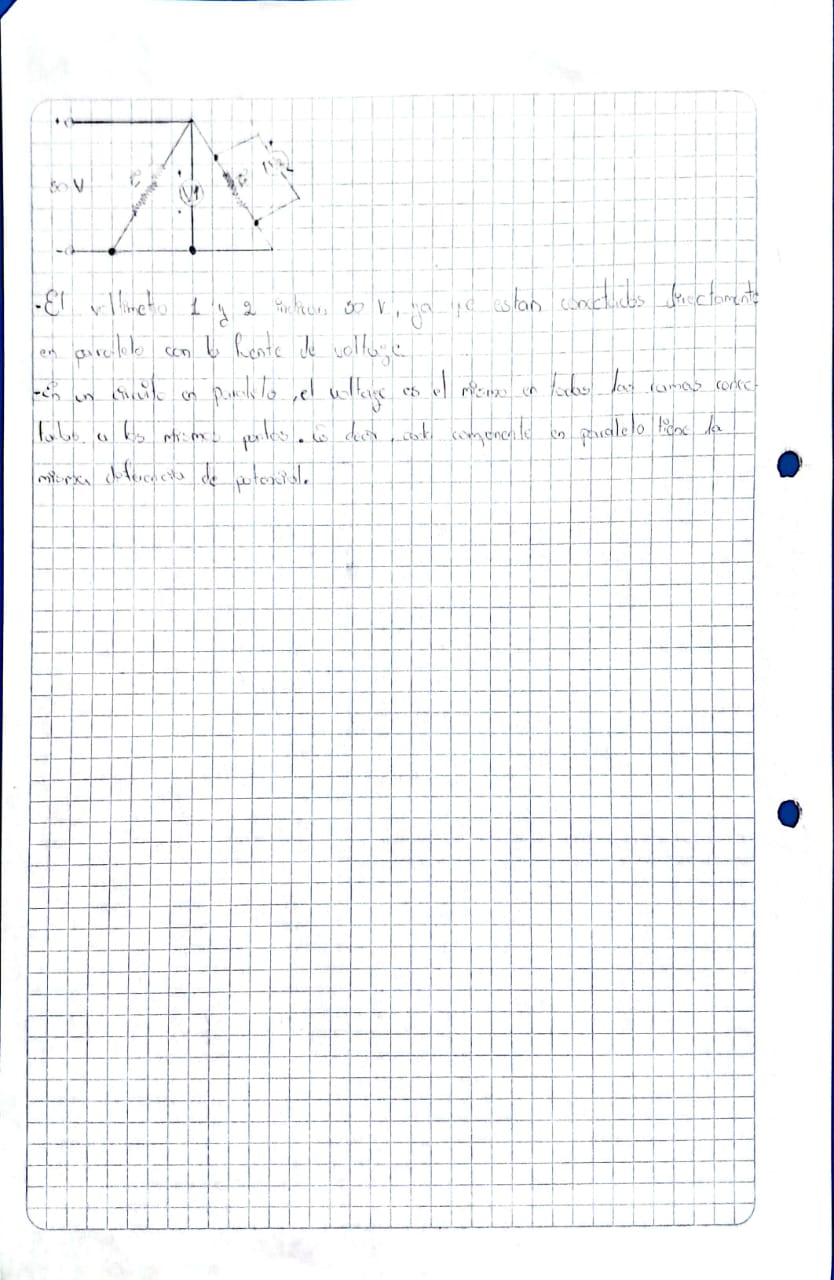 V1
V
-El voltimetro 1 y 2 indican 50 V, ya que estan conectados directamente
en paralelo con la fuente de voltage
-En un circuito en paralelo, el voltage es el mismo en todas las ramas conec-
tadas a los mismos puntos. es decir, cada componente en paralelo tiene la
misma diferencia de potencial.